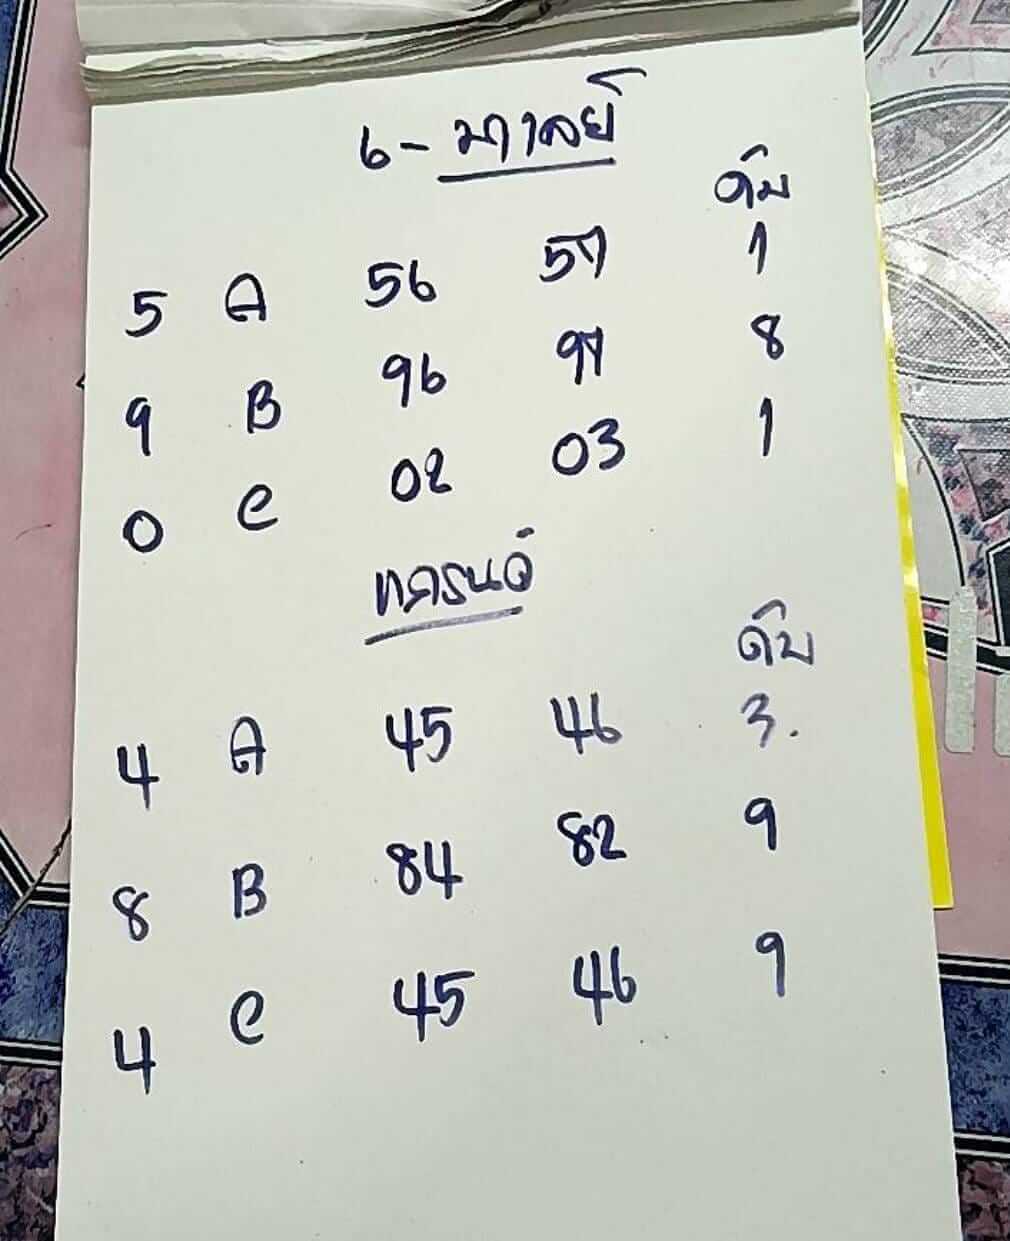 6 - มาลย์
ดับ
5 A 56 57 1
9 B 96 97 8
0 C 02 03 1
ดับ
4 A 45 46 3.
8 B 84 82 9
4 C 45 46 9